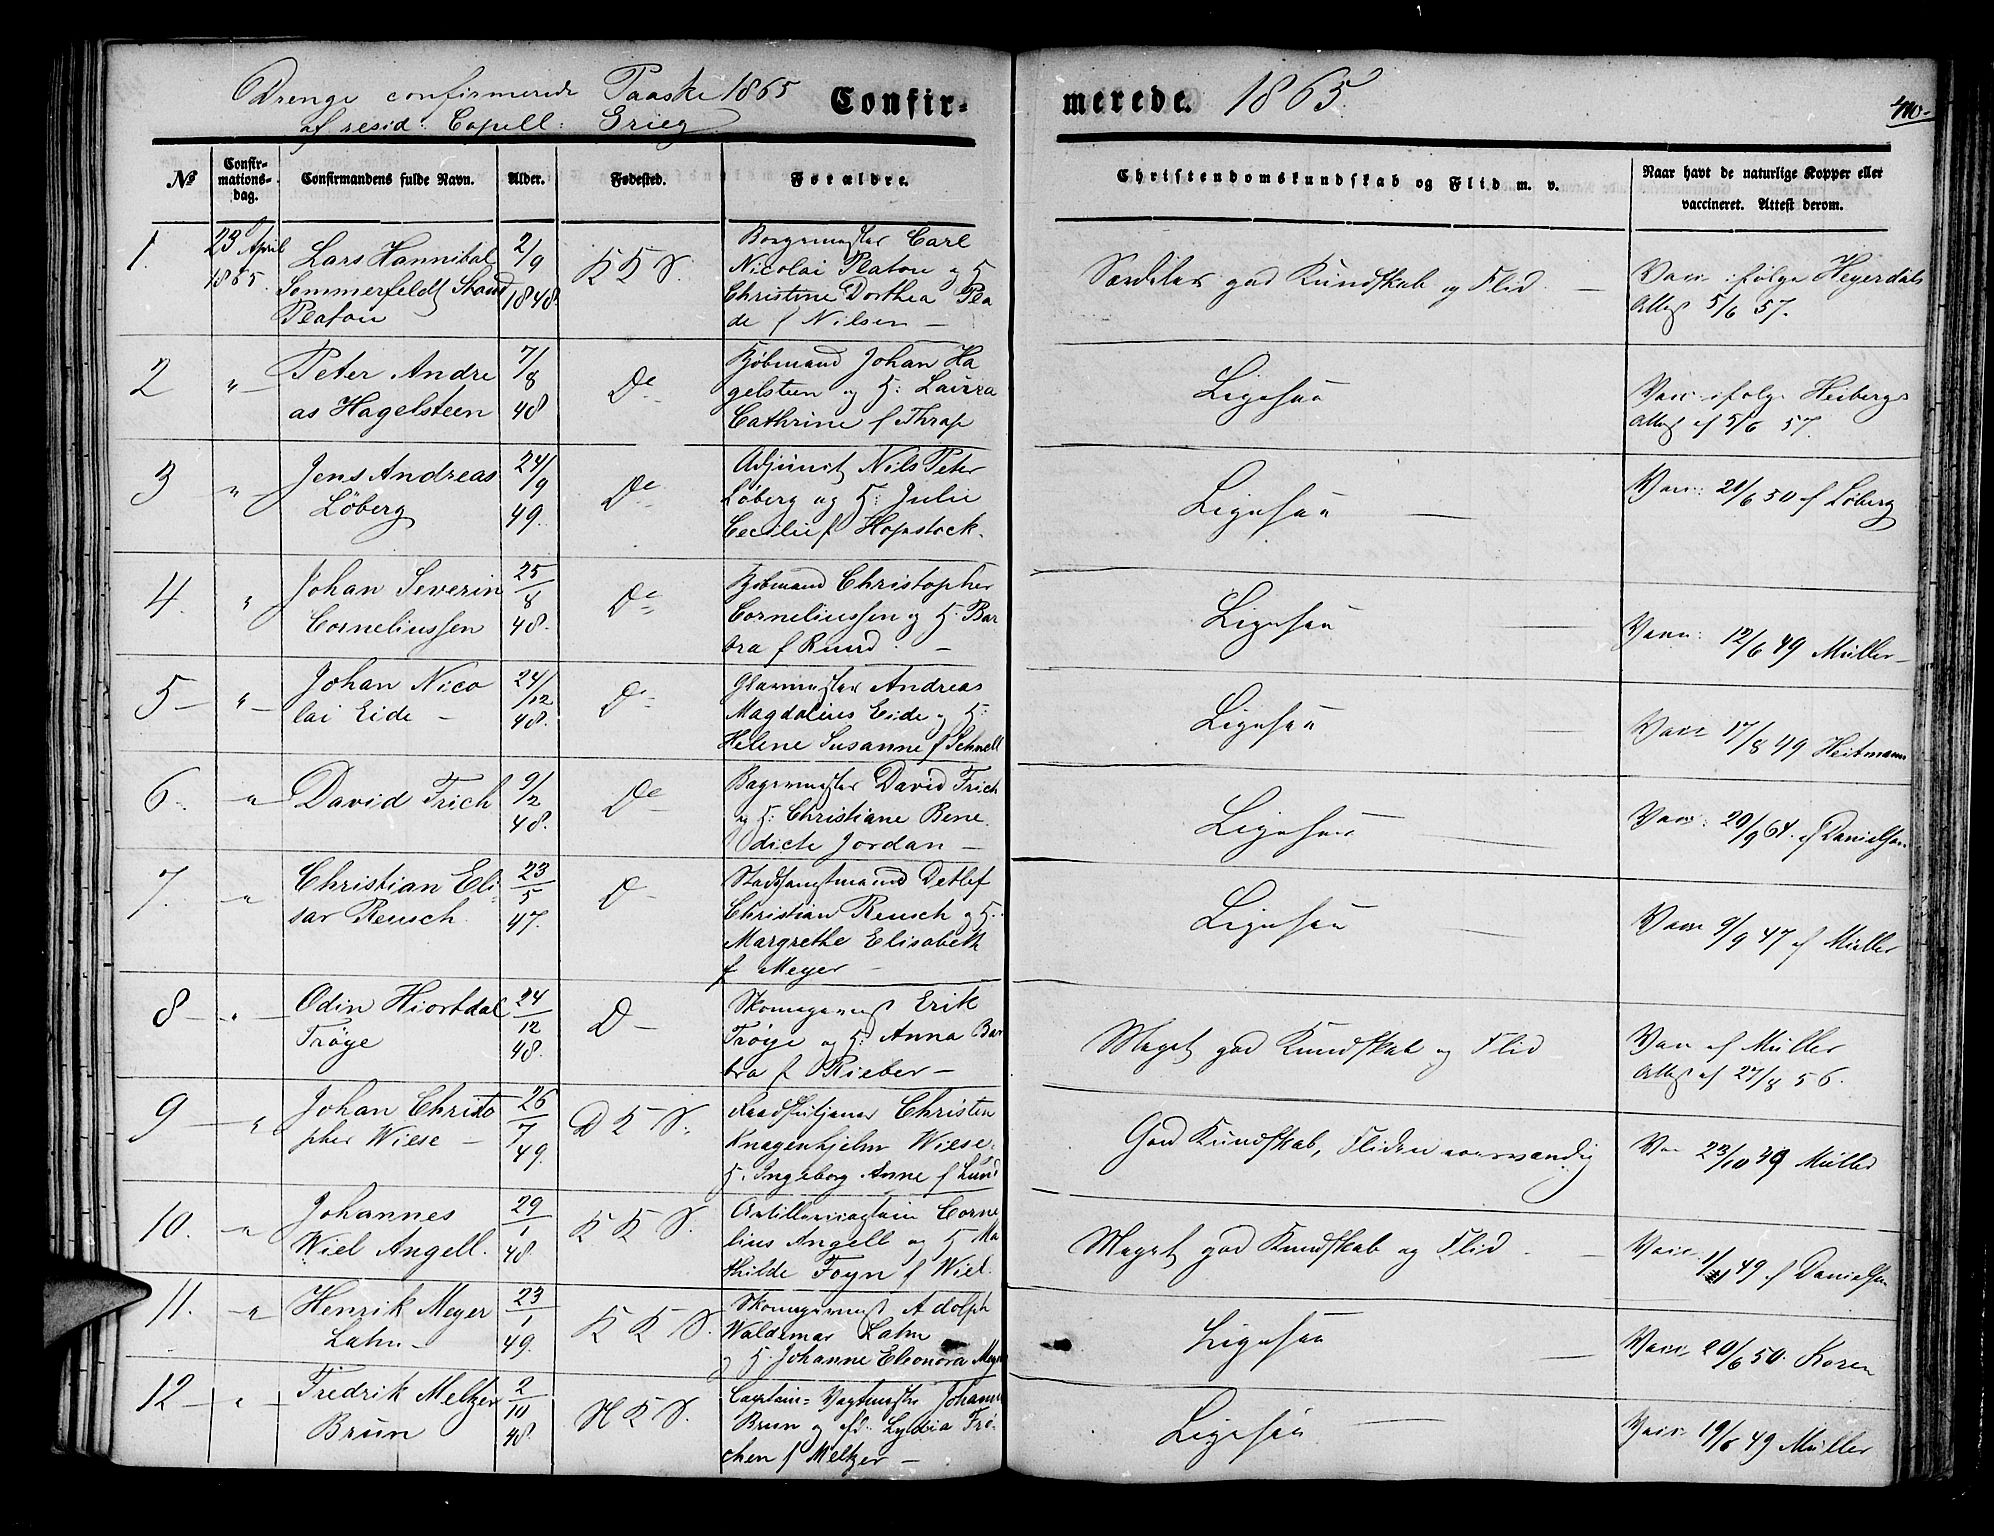 Drenge confirmerede Paaske 1865
af resid: Capell: Grieg
Confir-
merede. 1865.
No
Confir-
mations-
dag.
Confirmandens fulde Navn.
Alder.
Fødested.
Forældre.
Christendomskundskab og Flid m. v.
Naar havt de naturlige Kopper eller
vaccineret. Attest derom.
1.
23 April
1865.
Lars Hannibal
Sommerfeldt
Platou
2/9
1848.
K K S.
Carl
Nicolai Platou og H:
Christine Dorthea Pla
de f Nilsen -
Særdeles god Kundskab og Flid. -
Vacc. ifølge Heyerdals
Attest 5/6 57.
2
"
Peter Andre
as Hagelsteen
7/8
48
Do
Kjøbmand Johan Ha
gelsteen og H: Laura
Cathrine f Thrap
Ligesaa
Vacc. ifølge Heibergs
Attest af 5/6 57.
3
"
Jens Andreas
Löberg
24/9
49.
Do
Adjunct Nils Peter
Löberg og H: Julie
Cecilie f Hopstock.
Ligesaa -
Vacc: 21/6 50 af Löberg
4.
"
Johan Severin
Corneliussen
25/8
48.
Do
Kjöbmand Christopher
Corneliussen og H. Bar
bra f Ruud. -
Ligesaa -
Vacc: 12/6 49 Müller -
5 -
"
Johan Nico
lai Eide -
24/12
48.
Do
Glarmester Andreas
Magdalius Eide og H:
Helene Susanne f Schnell
Ligesaa -
Vacc 17/8 49 Heitmann
6.
"
David Frich
9/2
48.
Do
Bagermester David Frich
og H: Christiane Bene
dicte Jordan -
Ligesaa
Vacc: 20/9 64. af Danielsen
7.
"
Christian Eli
sar Reusch.
23/5
47.
D -
Detlef
Christian Reusch og H.
Margrethe Elisabeth
f Meyer -
Ligesaa
Vacc 9/9 47 af Müller
8 -
"
Odin Hiortdal
Tröye
24/12
48.
D -
Skomagermest Erik
Tröye og H: Anna Bar
bra f Rieber -
Meget god Kundskab og Flid
Vacc af Müller
Attest af 27/8 56.
9
"
Johan Christo
pher Wiese -
26/7
49.
D K S.
Christen
Knagenhjelm Wiese.
H. Ingeborg Anne f Lund
God Kundskab, Fliden
Vac 23/10 Müller
10.
"
Johannes
Wiel Angell.
29/1
48.
K K S.
Artillericaptain Corne
lius Angell og H Ma
thilde Foyn f Wiel.
Meget god Kundskab og Flid. -
Vacc. 49 af Danielsen
11.
"
Henrik Meyer
Lahn -
23/1
49.
K K S.
Skomagermest Adolph
Waldemar Lahn
og H. Johanne Eleonora Meyer
Ligesaa -
Vacc. 20/6 50. Koren
12 -
"
Fredrik Meltzer
Brun
2/10
48.
N K S.
Captain Johann
Brun og afd. Lydia Frö
chen f Meltzer -
Ligesaa -
Vacc: 19/6 49 Müller